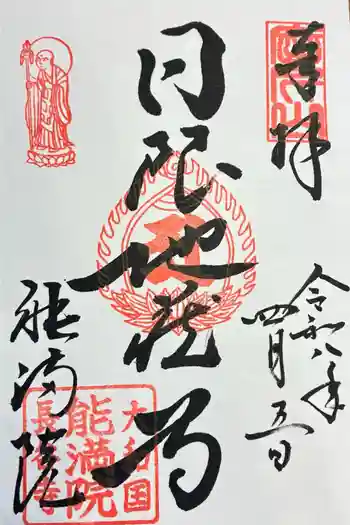 奉拝
令和八年
四月五日
日限地蔵尊
能満院
大和国
能満院
長谷寺